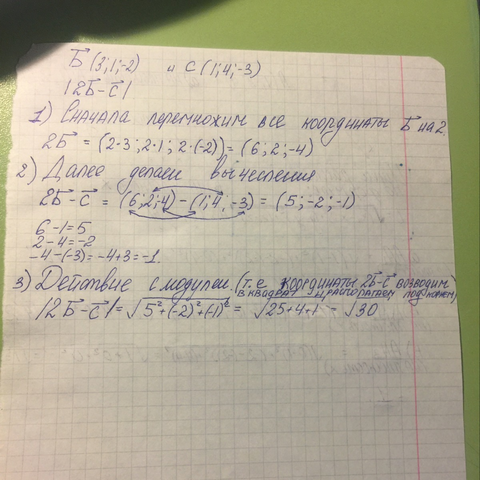 Б⃗ (3;1;-2) и С (1;4;-3)
|2Б⃗-с⃗|
1) Сначала перемножим все координаты Б⃗ на 2.
2Б⃗ = (2·3; 2·1; 2·(-2)) = (6; 2; -4)
2) Далее делаем вычисления
2Б⃗-с⃗ = (6;2;4) - (1;4;-3) = (5;-2;-1)
6-1=5
2-4=-2
-4-(-3)=-4+3=-1.
3) Действие с модулем. (т.е координаты 2Б⃗-с⃗ возводим
в квадрат и располагаем под корнем)
|2Б⃗-с⃗| = √5²+(-2)²+(-1)² = √25+4+1 = √30